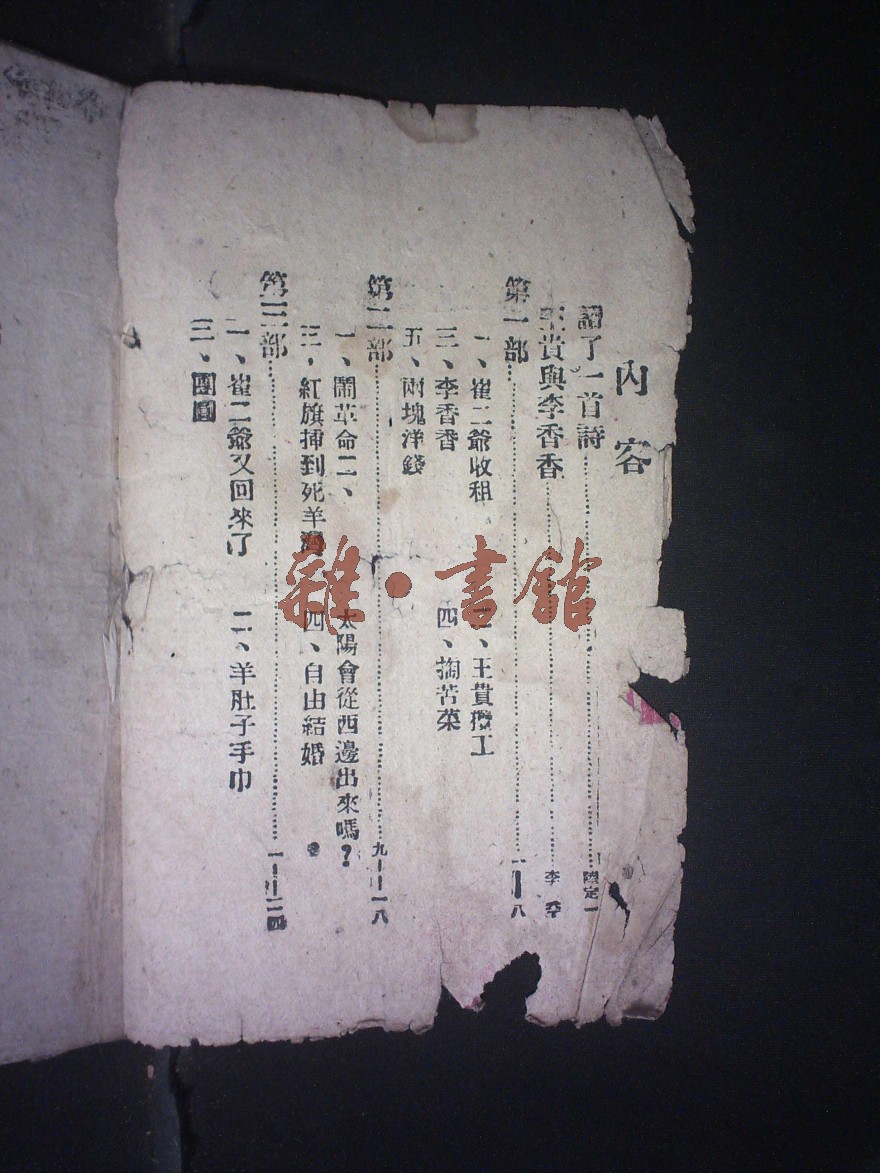 內容
讀了一首詩……陸定一
王貴與李香香……李季
第一部……一—八
一、崔二爺收租 二、王貴攬工
三、李香香 四、掏苦菜
五、兩塊洋錢
第二部……九——一八
一、鬧革命二、太陽會從西邊出來嗎？
三，紅旗揷到死羊灣 四、自由結婚
第三部……二四
一、崔二爺又回來了 二、羊肚子手巾
三、團圓
雜·書館